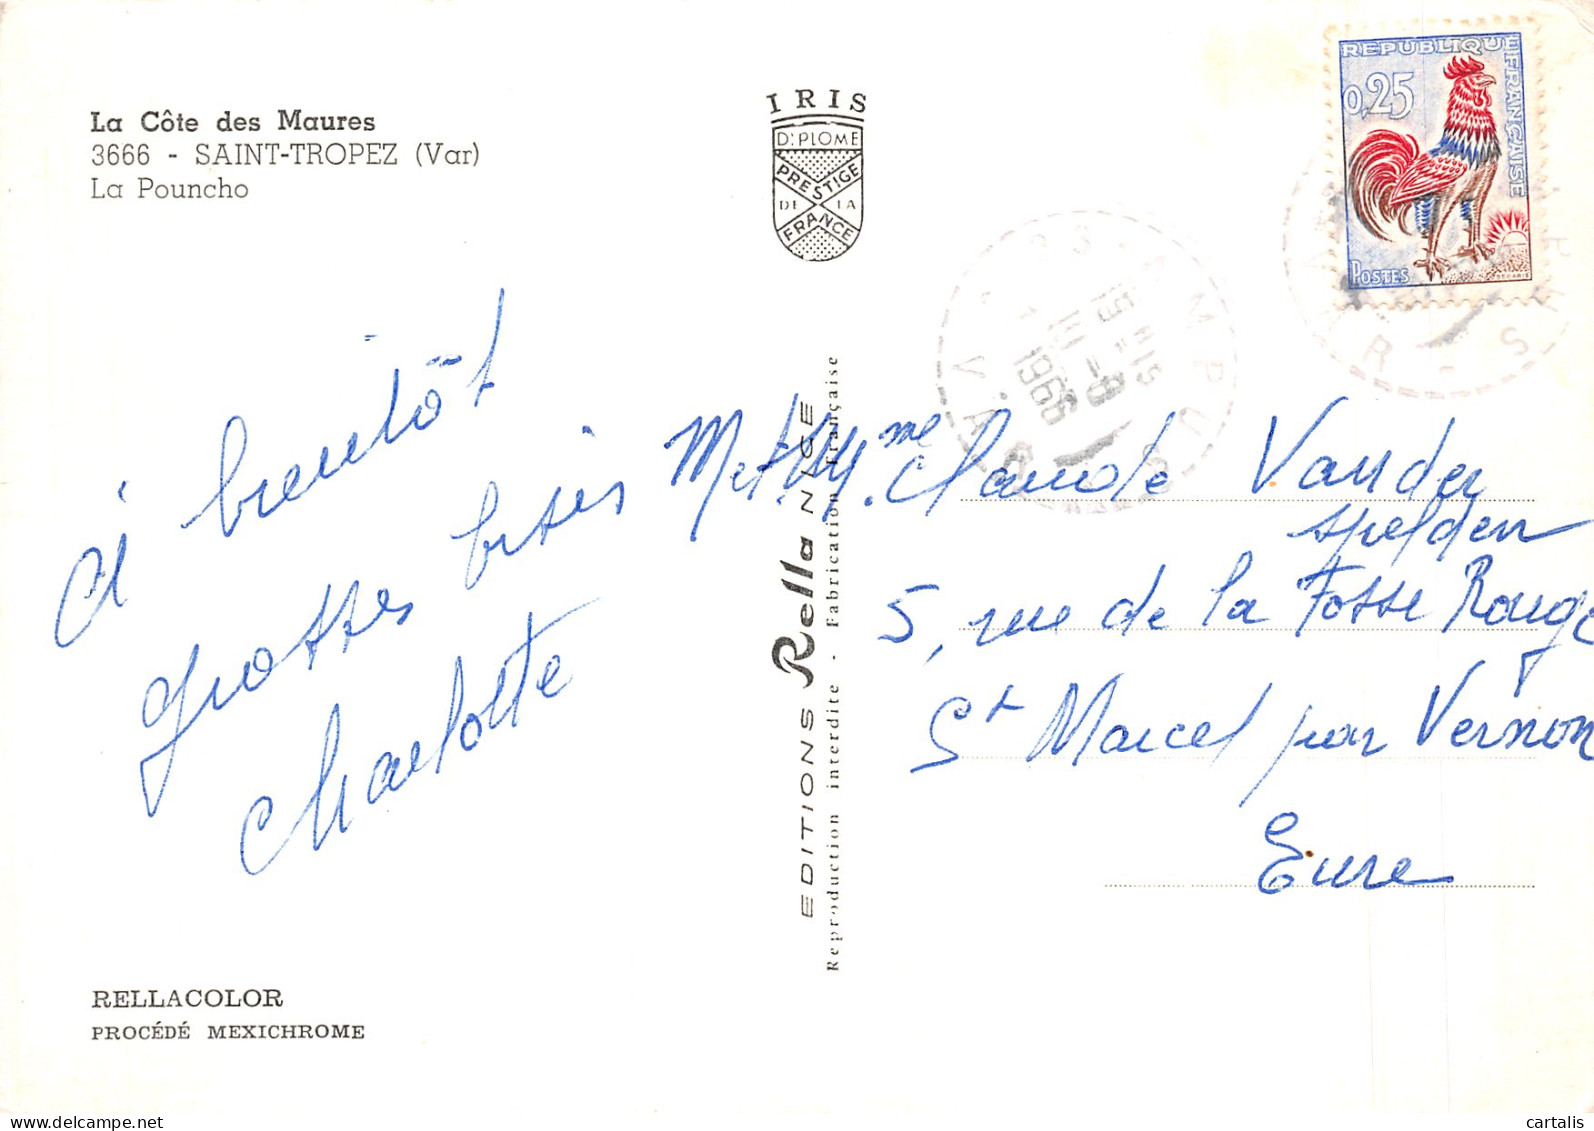 La Côte des Maures
3666 - SAINT-TROPEZ (Var)
La Pouncho
à bientôt
grosses bises
Charlotte
RELLACOLOR
PROCÉDÉ MEXICHROME
IRIS
DIPLOME
PRESTIGE
DE LA
FRANCE
EDITIONS Rella NICE
Reproduction interdite - Fabrication Française
REPUBLIQUE FRANÇAISE
0,25
POSTES
1966
VAR
M et Mme Claude Vander
spelden
5, rue de la Fosse Rouge
St Marcel par Vernon
Eure